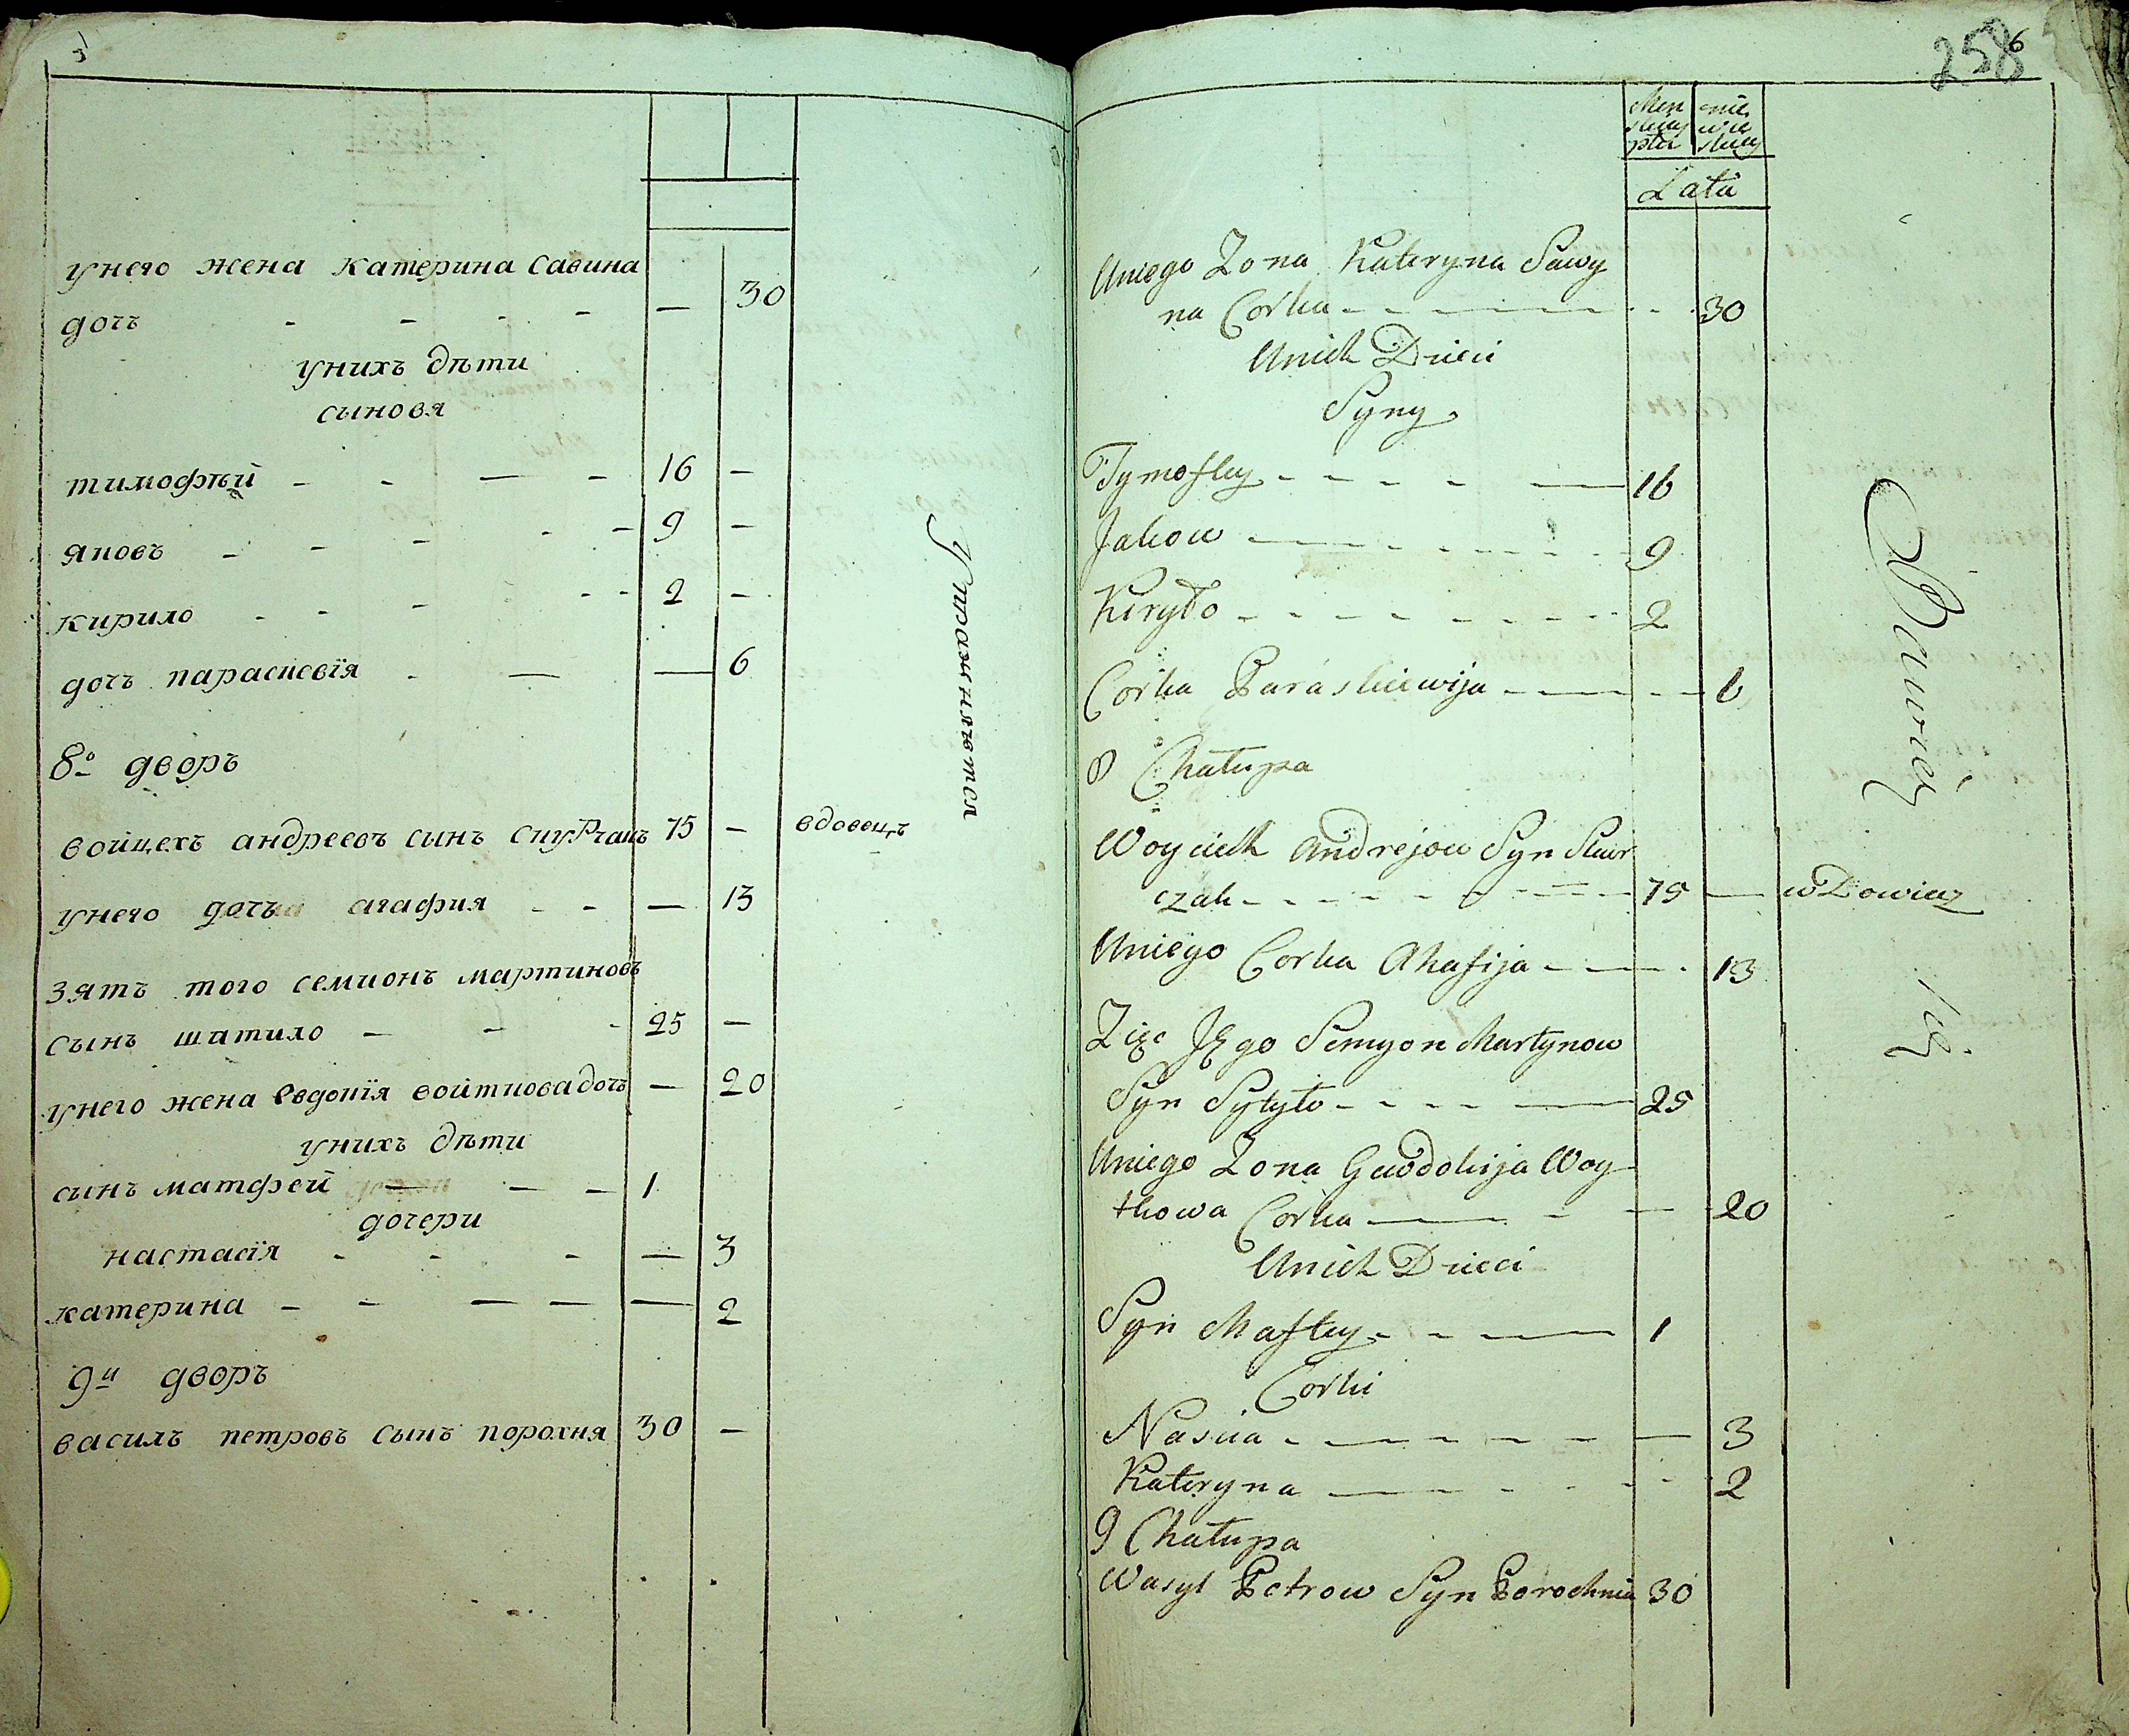 унего жена катерина савина
дочъ - - - - — 30
унихъ дѣти
сыновя
тимофѣй - - — - 16 —
яковъ - - - - - 9 —
кирило - - - - - 2 —
дочъ параскевїя - — — 6
8о дворъ
войцехъ андреевъ сынъ скурчакъ 75 — вдовецъ
унего дочъ агафия - - — 13
зятъ того семионъ мартиновъ
сынъ шатило - - - 25 —
унего жена евдокїя войткова дочъ — 20
унихъ дѣти
сынъ матфей — - - 1
дочери
настасїя - - - — 3
катерина - - — — — 2
9й дворъ
василъ петровъ сынъ порохня 30 —
Упражняются
258
6
Męz
skiey
płci
nie
wie
skiey
Lata
Uniego Zona Kateryna Sawy
na Corka - - - - - 30
Unich Dzieci
Syny
Tymofiey - - - - — 16
Jakow — - - - - - 9
Kiryło - - - - - - - 2
Corka Paraskiewija - — - - 6
8 Chałupa
Woyciech Andrejow Syn Skur
czak - - - - - - - 75 — wDowiec
Uniego Corka Ahafija - — - 13
Zięc Jęgo Semyon Martynow
Syn Sytyło - - - - — 25
Uniego Zona Gewdokija Woy
tkowa Corka — - — 20
Unich Dzieci
Syn Mafiey - - - — 1
Corki
Nascia - — - - - — 3
Kateryna — - - - - 2
9 Chałupa
Wasyl Petrow Syn Porochnia 30
się